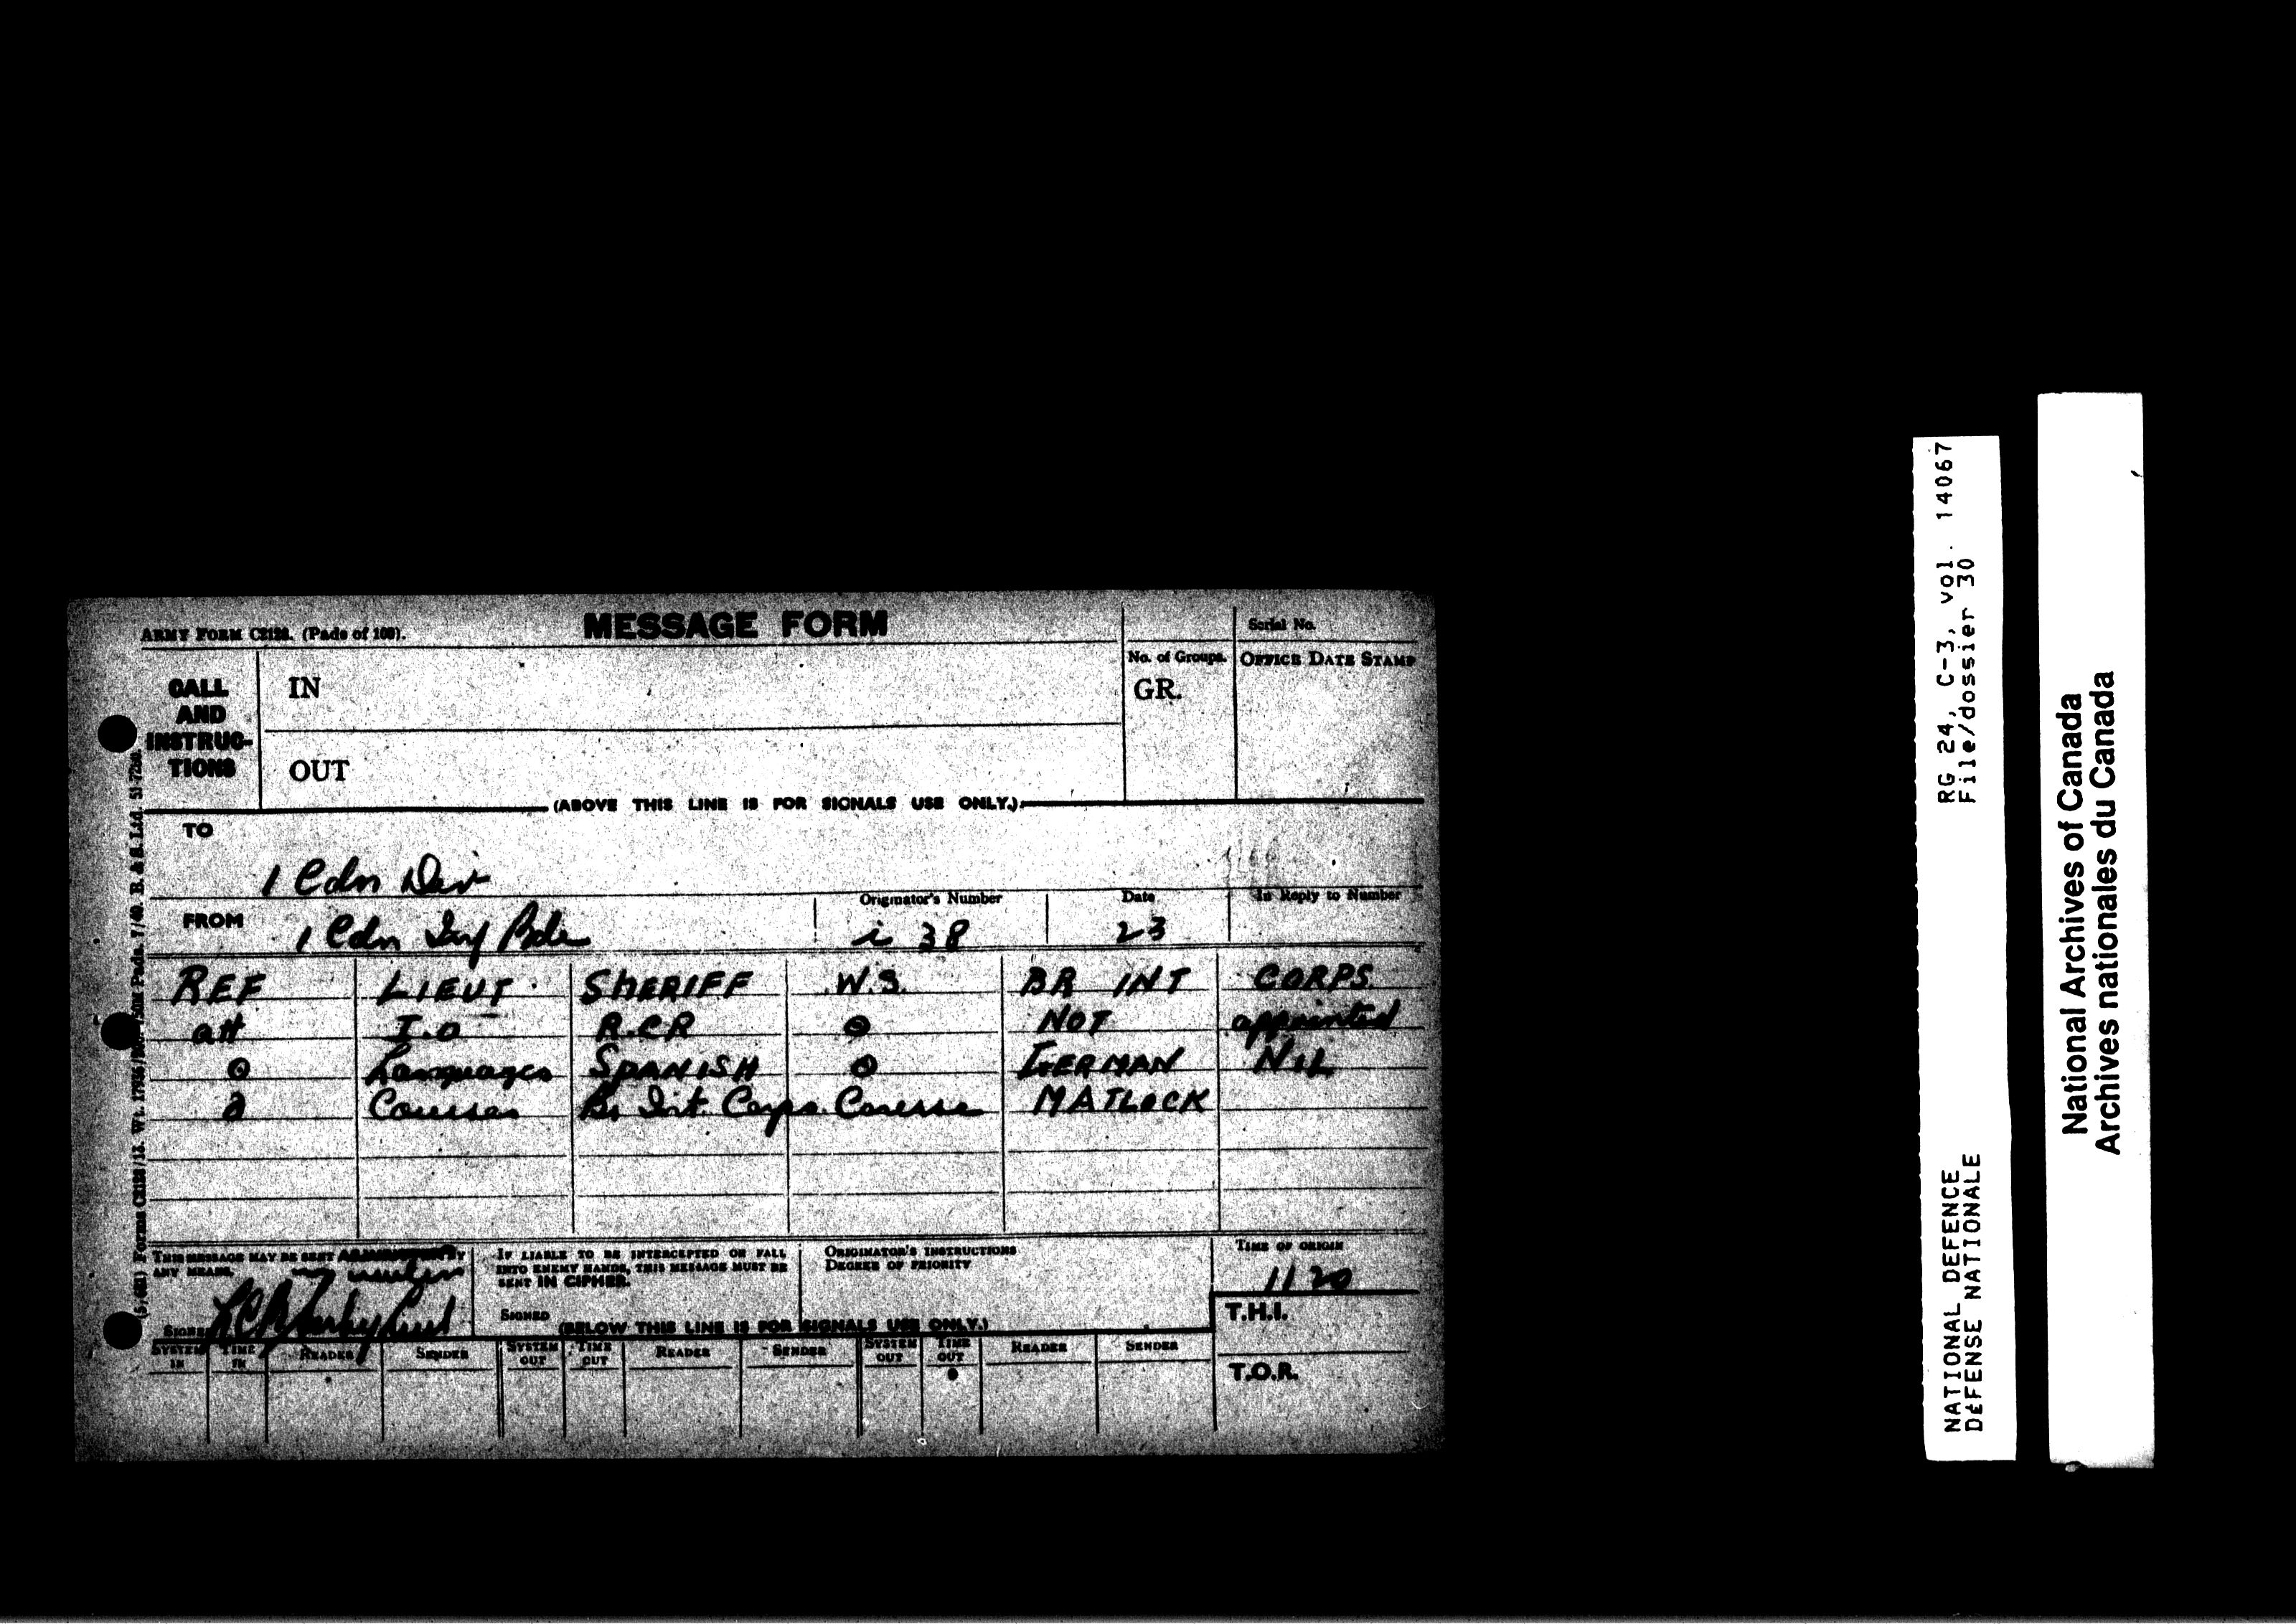 ARMY FORM C2128. (Pads of 100).
MESSAGE FORM
Serial No.
CALL AND INSTRUC-TIONS
IN
No. of Groups.
GR.
OFFICE DATE STAMP
OUT
(ABOVE THIS LINE IS FOR SIGNALS USE ONLY.)
TO
1 Cdn Div
FROM
1 Cdn Inf Bde
Originator's Number
i 38
Date
23
In Reply to Number
REF LIEUT SHERIFF W.S. BR INT CORPS
att I.O R.C.R NOT appointed
Languages SPANISH GERMAN NIL
Courses Br Int. Corps. Course MATLOCK
THIS MESSAGE MAY BE SENT BY
ANY MEANS.
SIGNED
IF LIABLE TO BE INTERCEPTED OR FALL
INTO ENEMY HANDS, THIS MESSAGE MUST BE
SENT IN CIPHER.
SIGNED
ORIGINATOR'S INSTRUCTIONS
DEGREE OF PRIORITY
TIME OF ORIGIN
1120
T.H.I.
(BELOW THIS LINE IS FOR SIGNALS USE ONLY.)
SYSTEM IN TIME IN READER SENDER SYSTEM OUT TIME OUT READER SENDER SYSTEM OUT TIME OUT READER SENDER
T.O.R.
NATIONAL DEFENCE RG 24, C-3, vol. 14067
DÉFENSE NATIONALE File/dossier 30
National Archives of Canada
Archives nationales du Canada